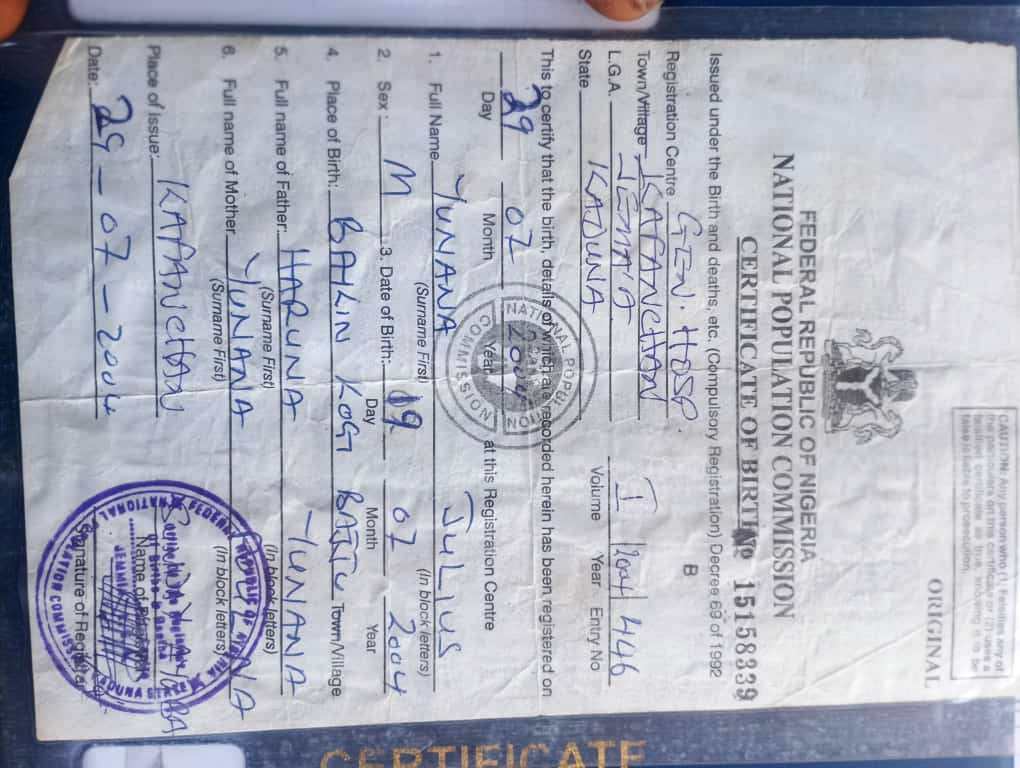 ORIGINAL
CAUTION: Any person who (1) Falsifies any of
the particulars on this certificate or (2) uses a
falsified certificate as true, knowing to be
false is liable to prosecution.
FEDERAL REPUBLIC OF NIGERIA
NATIONAL POPULATION COMMISSION
CERTIFICATE OF BIRTH
No 15158339
Issued under the Birth and deaths, etc. (Compulsory Registration) Decree 69 of 1992
B
Registration Centre GEN. HOSP.
Town/Village KAFANCHAN
L.G.A. JEMA'A I 2004 446
Volume Year Entry No
State KADUNA
This to certify that the birth, details of which are recorded herein has been registered on
29 07 2004
Day Month Year at this Registration Centre
1. Full Name YUNANA JULIUS
(Surname First) (In block letters)
2. Sex: M 3. Date of Birth: 19 07 2004
Day Month Year
4. Place of Birth: BAYLIN KOGI BATTU Town/Village
5. Full name of Father: HARUNA YUNANA
(Surname First) (In block letters)
6. Full name of Mother YUNANA
(Surname First) (In block letters)
Place of Issue: KAFANCHAN
Name of
Date: 29-07-2004
Signature of Registrar
NATIONAL POPULATION COMMISSION
CERTIFICATE